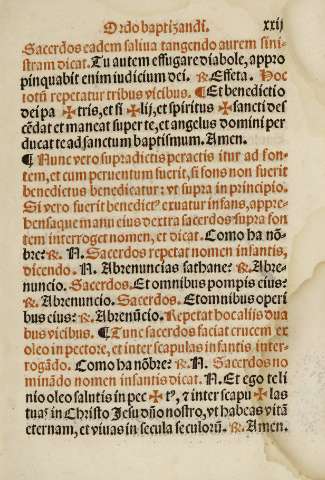 Ordo baptizandi. xxij
Sacerdos eadem saliva tangendo aurem sini-
stram dicat. Tu autem effugare diabole, appro
pinquabit enim iudicium dei. ℟. Effeta. Hoc
totū repetatur tribus vicibus. ¶ Et benedictio
dei pa ✠ tris, et fi ✠ lij, et spiritus ✠ sancti des
cēdat et maneat super te, et angelus domini per
ducat te ad sanctum baptismum. Amen.
¶ Nunc vero supradictis peractis itur ad fon-
tem, et cum peruentum fuerit, si fons non fuerit
benedictus benedicatur: vt supra in principio.
Si vero fuerit benedictꝰ exuatur infans, appre-
hensaque manu eius dextra sacerdos supra fon
tem interroget nomen, et dicat. Como ha nō-
bre? ℟. N. Sacerdos repetat nomen infantis,
dicendo. N. Abrenuncias sathane? ℟. Abre-
nuncio. Sacerdos. Et omnibus pompis eius?
℟. Abrenuncio. Sacerdos. Et omnibus operi
bus eius? ℟. Abrenūcio. Repetat hoc alijs dua
bus vicibus. ¶ Tunc sacerdos faciat crucem ex
oleo in pectore, et inter scapulas infantis inter-
rogādo. Como ha nōbre? ℟. N. Sacerdos no
minādo nomen infantis dicat. N. Et ego te li
nio oleo salutis in pec ✠ tꝰ, ⁊ inter scapu ✠ las
tuaꝭ in Christo Jesu dn̄o nostro, vt habeas vitā
eternam, et viuas in secula seculorū. ℟. Amen.